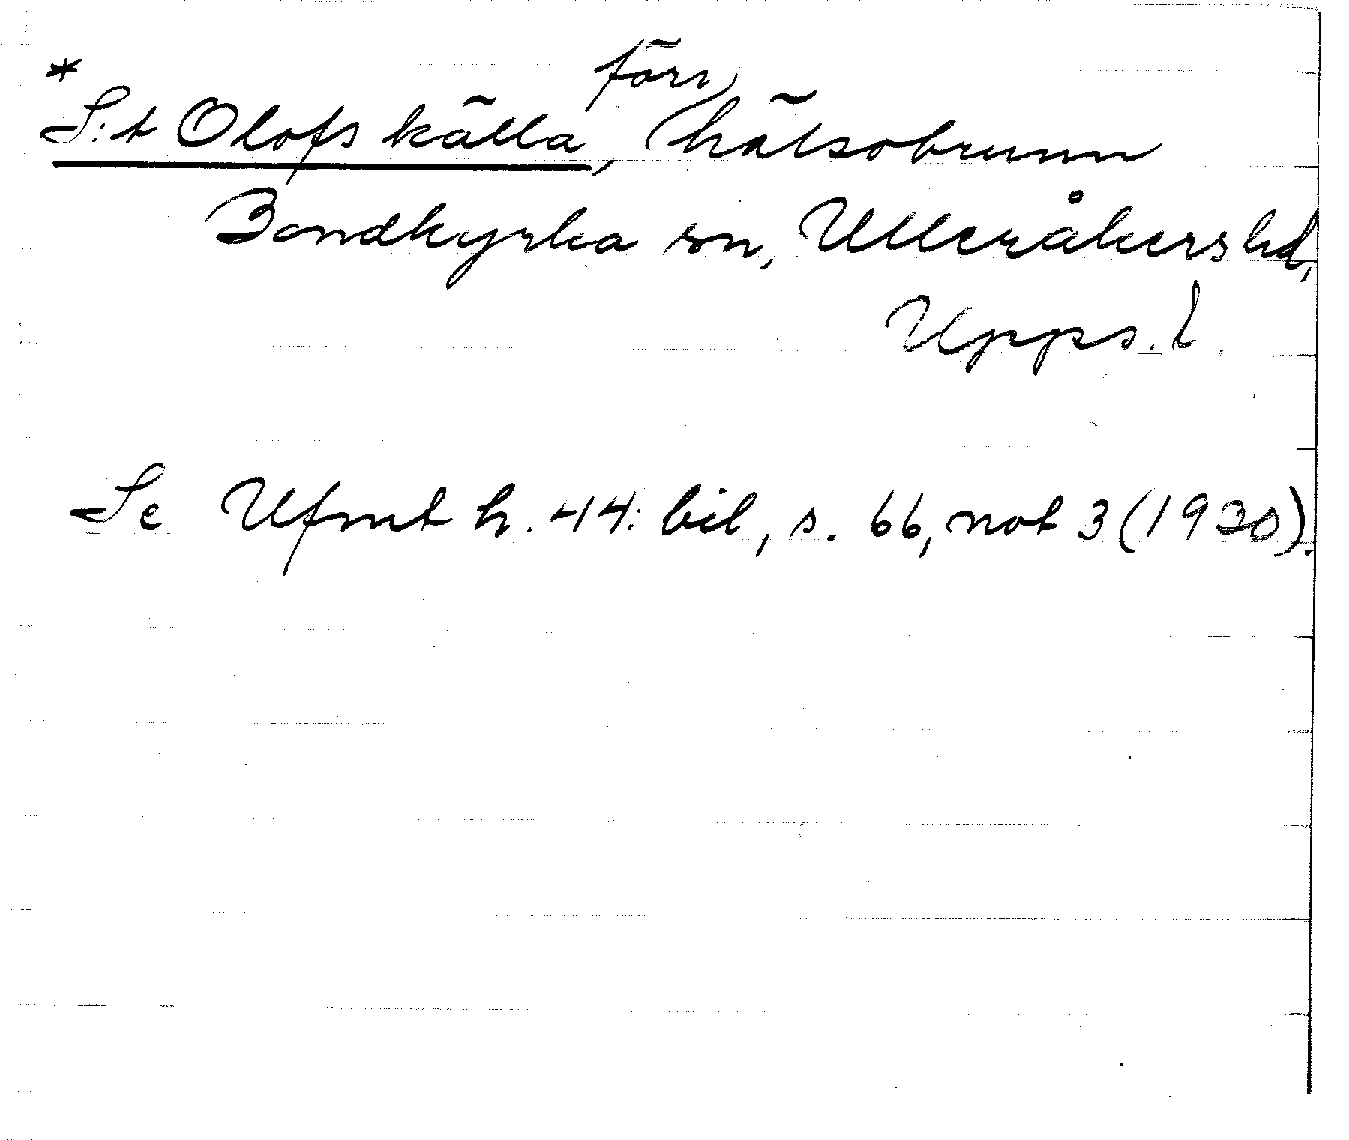 *
S:t Olofs källa, förs, hälsobrunn
Bondkyrka sn, Ulleråkers hd,
Upps. l.
Se Ufmt h. 44: bil, s. 66, not 3 (1930).